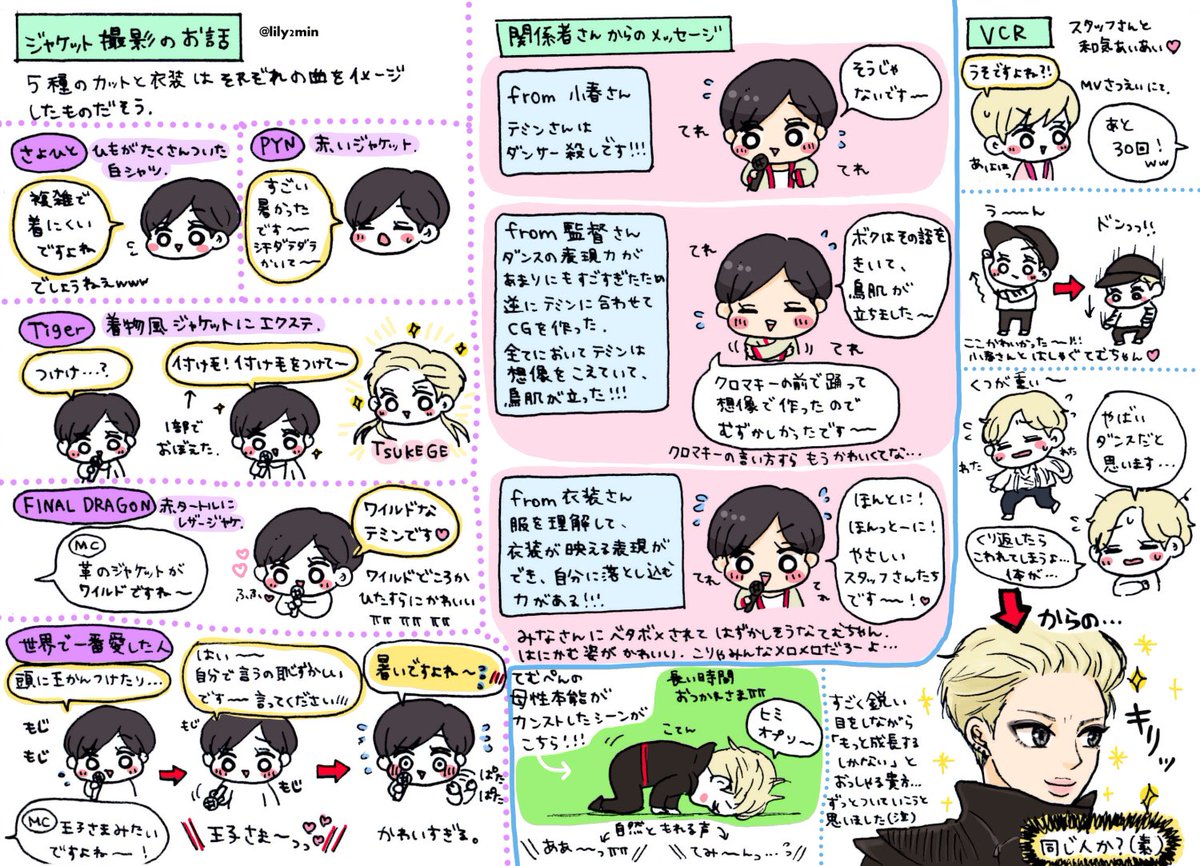 ジャケット撮影のお話
@lily2min
5種のカットと衣装はそれぞれの曲をイメージ
したものだそう.
さよひと
ひもがたくさんついた
白シャツ.
複雑で
着にくい
ですよね
でしょうねぇwww
PYN
赤いジャケット.
すごい
暑かった
です〜
汗ダラダラ
かいて〜
Tiger
着物風ジャケットにエクステ.
つけけ…?
付け毛!付け毛をつけて〜
1部で
おぼえた.
TSUKEGE
FINAL DRAGON
赤タートルに
レザージャケ.
MC
革のジャケットが
ワイルドですね〜
ふふ
ワイルドな
テミンです♡
ワイルドどころか
ひたすらにかわいい
世界で一番愛した人
頭に王かんつけたり…
もじ
もじ
MC
王子さまみたい
ですよね〜!
はい〜〜
自分で言うの恥ずかしい
です〜言ってください!!!
もじ
もじ
王子さま〜っっ♡
暑いですよね〜
ぱた
ぱた
かわいすぎる。
関係者さんからのメッセージ
from 小春さん
テミンさんは
ダンサー殺しです!!!
てれ
てれ
そうじゃ
ないです〜
from 監督さん
ダンスの表現力が
あまりにもすごすぎたため
逆にテミンに合わせて
CGを作った.
全てにおいてテミンは
想像をこえていて、
鳥肌が立った!!!
てれ
てれ
ボクはその話を
きいて、
鳥肌が
立ちました〜
クロマキーの前で踊って
想像で作ったので
むずかしかったです〜
クロマキーの言い方すら もうかわいくてな…
from 衣装さん
服を理解して、
衣装が映える表現が
でき、自分に落とし込む
力がある!!!
てれ
てれ
ほんとに!
ほんっとーに!
やさしい
スタッフさんたち
です〜!♡
みなさんにベタボメされて はずかしそうなてむちゃん.
はにかむ姿がかわいい. こりゃみんなメロメロだろーよ…
てむぺんの
母性本能が
カンストしたシーンが
こちら!!!
長い時間
おつかれさま
こてん
ヒミ
オプソ〜
自然ともれる声
ああ〜っ
てみ〜んっ…?
VCR
スタッフさんと
和気あいあい♡
うそですよね?!
MVさつえいにて.
あと
30回!
ww
う〜〜ん
ドンっっ!!
ここかわいかった〜!!!
小春さんとはしゃぐてむちゃん♡
くつが重い〜
わた
わた
やばい
ダンスだと
思います…
くり返したら
こわれてしまうよ…
体が…
からの…
すごく鋭い
目をしながら
「もっと成長する
しかない」と
おっしゃる貴方…
ずっとついていこうと
思いました(泣)
キリッ
同じ人か?(素)